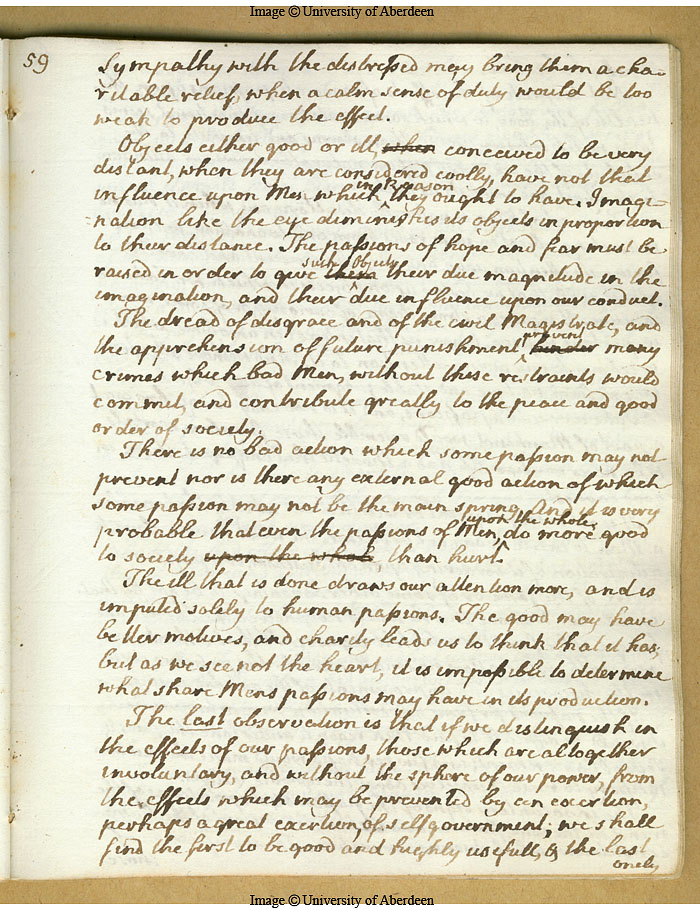 Image © University of Aberdeen
59
Sympathy with the distressed may bring them a cha-
ritable relief, when a calm sense of duty would be too
weak to produce the effect.
Objects either good or ill, when conceived to be very
distant, when they are considered coolly, have not that
influence upon Men which in Reason they ought to have. Imagi=
=nation like the eye diminishes its objects in proportion
to their distance. The passions of hope and fear must be
raised in order to give them such Objects their due magnitude in the
imagination, and their due influence upon our conduct.
The dread of disgrace and of the civil Magistrate, and
the apprehension of future punishment prevent many
crimes which bad Men, without these restraints would
commit, and contribute greatly to the peace and good
order of society.
There is no bad action which some passion may not
prevent nor is there any external good action of which
some passion may not be the main spring. And it is very
probable that even the passions of Men, upon the whole, do more good
to society upon the whole, than hurt.
The ill that is done draws our attention more, and is
imputed solely to human passions. The good may have
better motives, and charity leads us to think that it has;
but as we see not the heart, it is impossible to determine
what share Mens passions may have in its production.
The last observation is that if we distinguish in
the effects of our passions, those which are altogether
involuntary, and without the sphere of our power, from
the effects which may be prevented by an exertion,
perhaps a great exertion, of self government; we shall
find the first to be good and highly usefull, & the last
onely
Image © University of Aberdeen